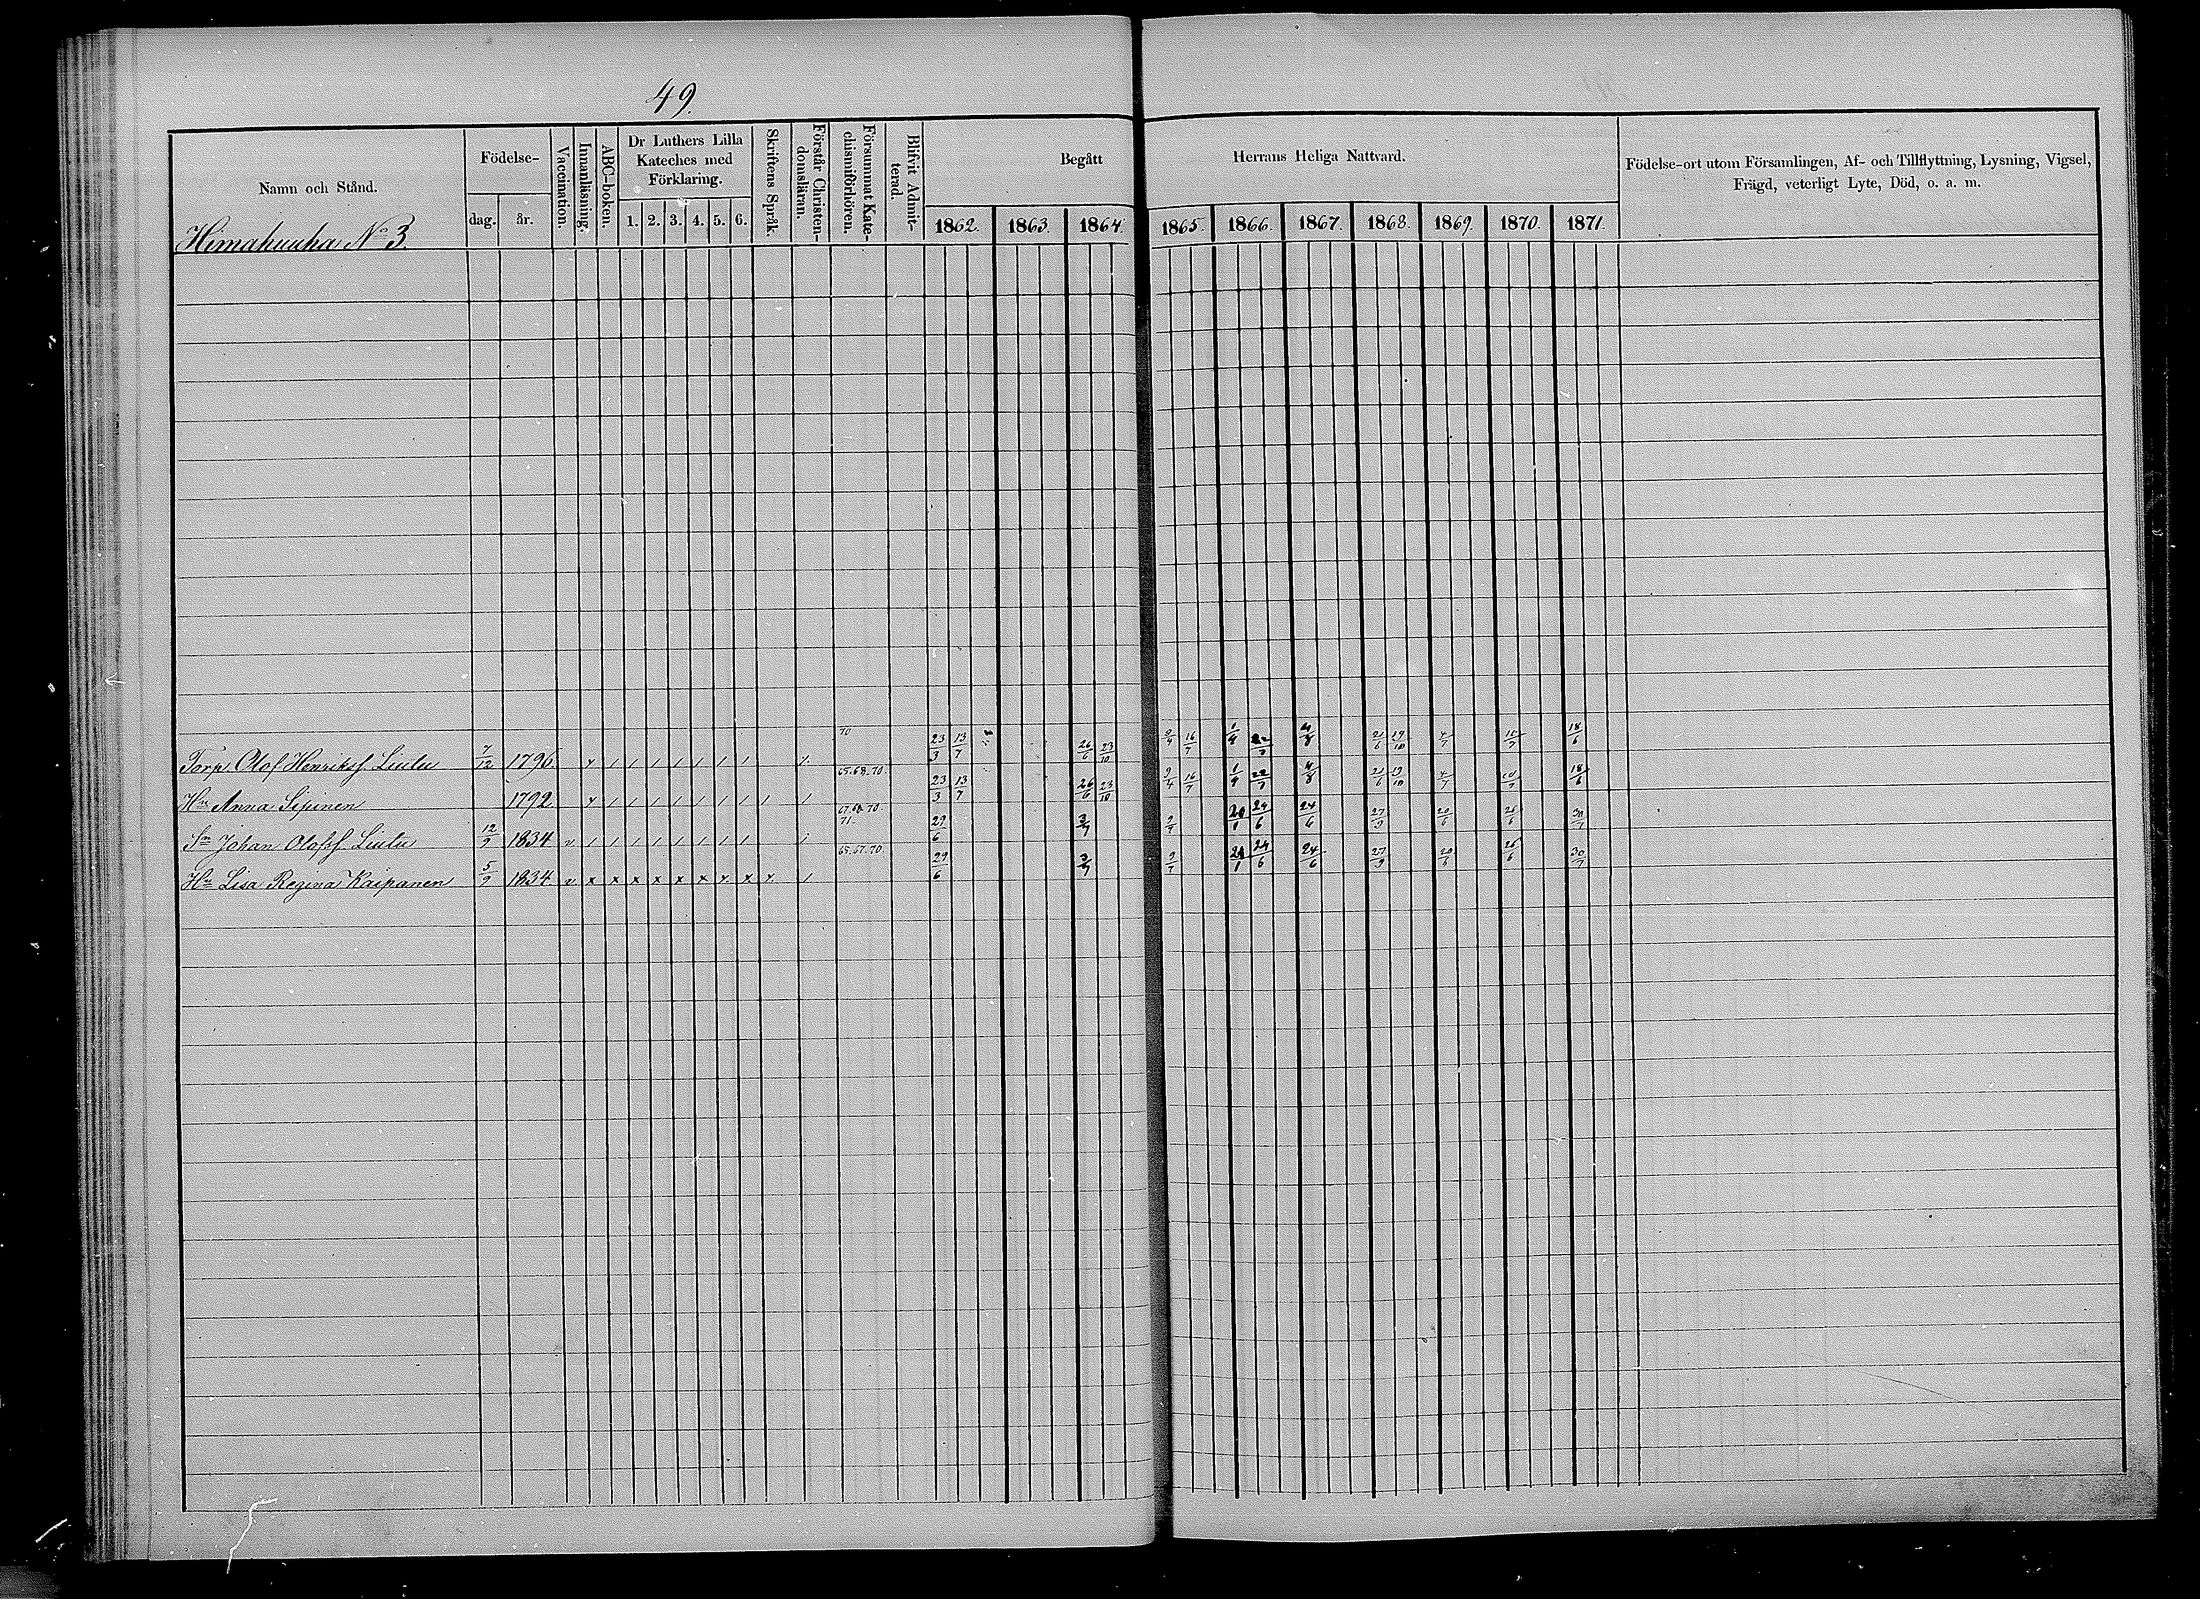 49.
Namn och Stånd.
Födelse-
dag. år.
Vaccination.
Innanläsning.
ABC-boken.
Dr Luthers Lilla
Kateches med
Förklaring.
1. 2. 3. 4. 5. 6.
Skriftens Språk.
Förstår Christen-
domsläran.
Försummat Kate-
chismiförhören.
Blifvit Admit-
terad.
Begått Herrans Heliga Nattvard.
1862. 1863. 1864. 1865. 1866. 1867. 1868. 1869. 1870. 1871.
Födelse-ort utom Församlingen, Af- och Tillflyttning, Lysning, Vigsel,
Frägd, veterligt Lyte, Död, o. a. m.
Himahuaha No 3.
Torp. Olof Henrikss. Liulu 7/12 1796 70 23/3 13/7 26/6 23/10 2/4 16/7 1/4 22/7 4/8 21/6 19/10 4/7 10/7 18/6
Hu Anna Sipinen 1792 65.68.70. 23/3 13/7 26/6 23/10 2/4 16/7 1/4 22/7 4/8 21/6 19/10 4/7 10/7 18/6
Sn Johan Olofss. Liulu 12/9 1834 v 67.68.70 71. 29/6 3/7 2/7 20/1 24/6 24/6 27/9 20/6 26/6 30/7
Hu Lisa Regina Kaipanen 5/9 1834. v x x x x x x x x x 65.67.70. 29/6 3/7 2/7 21/1 24/6 24/6 27/9 20/6 26/6 30/7